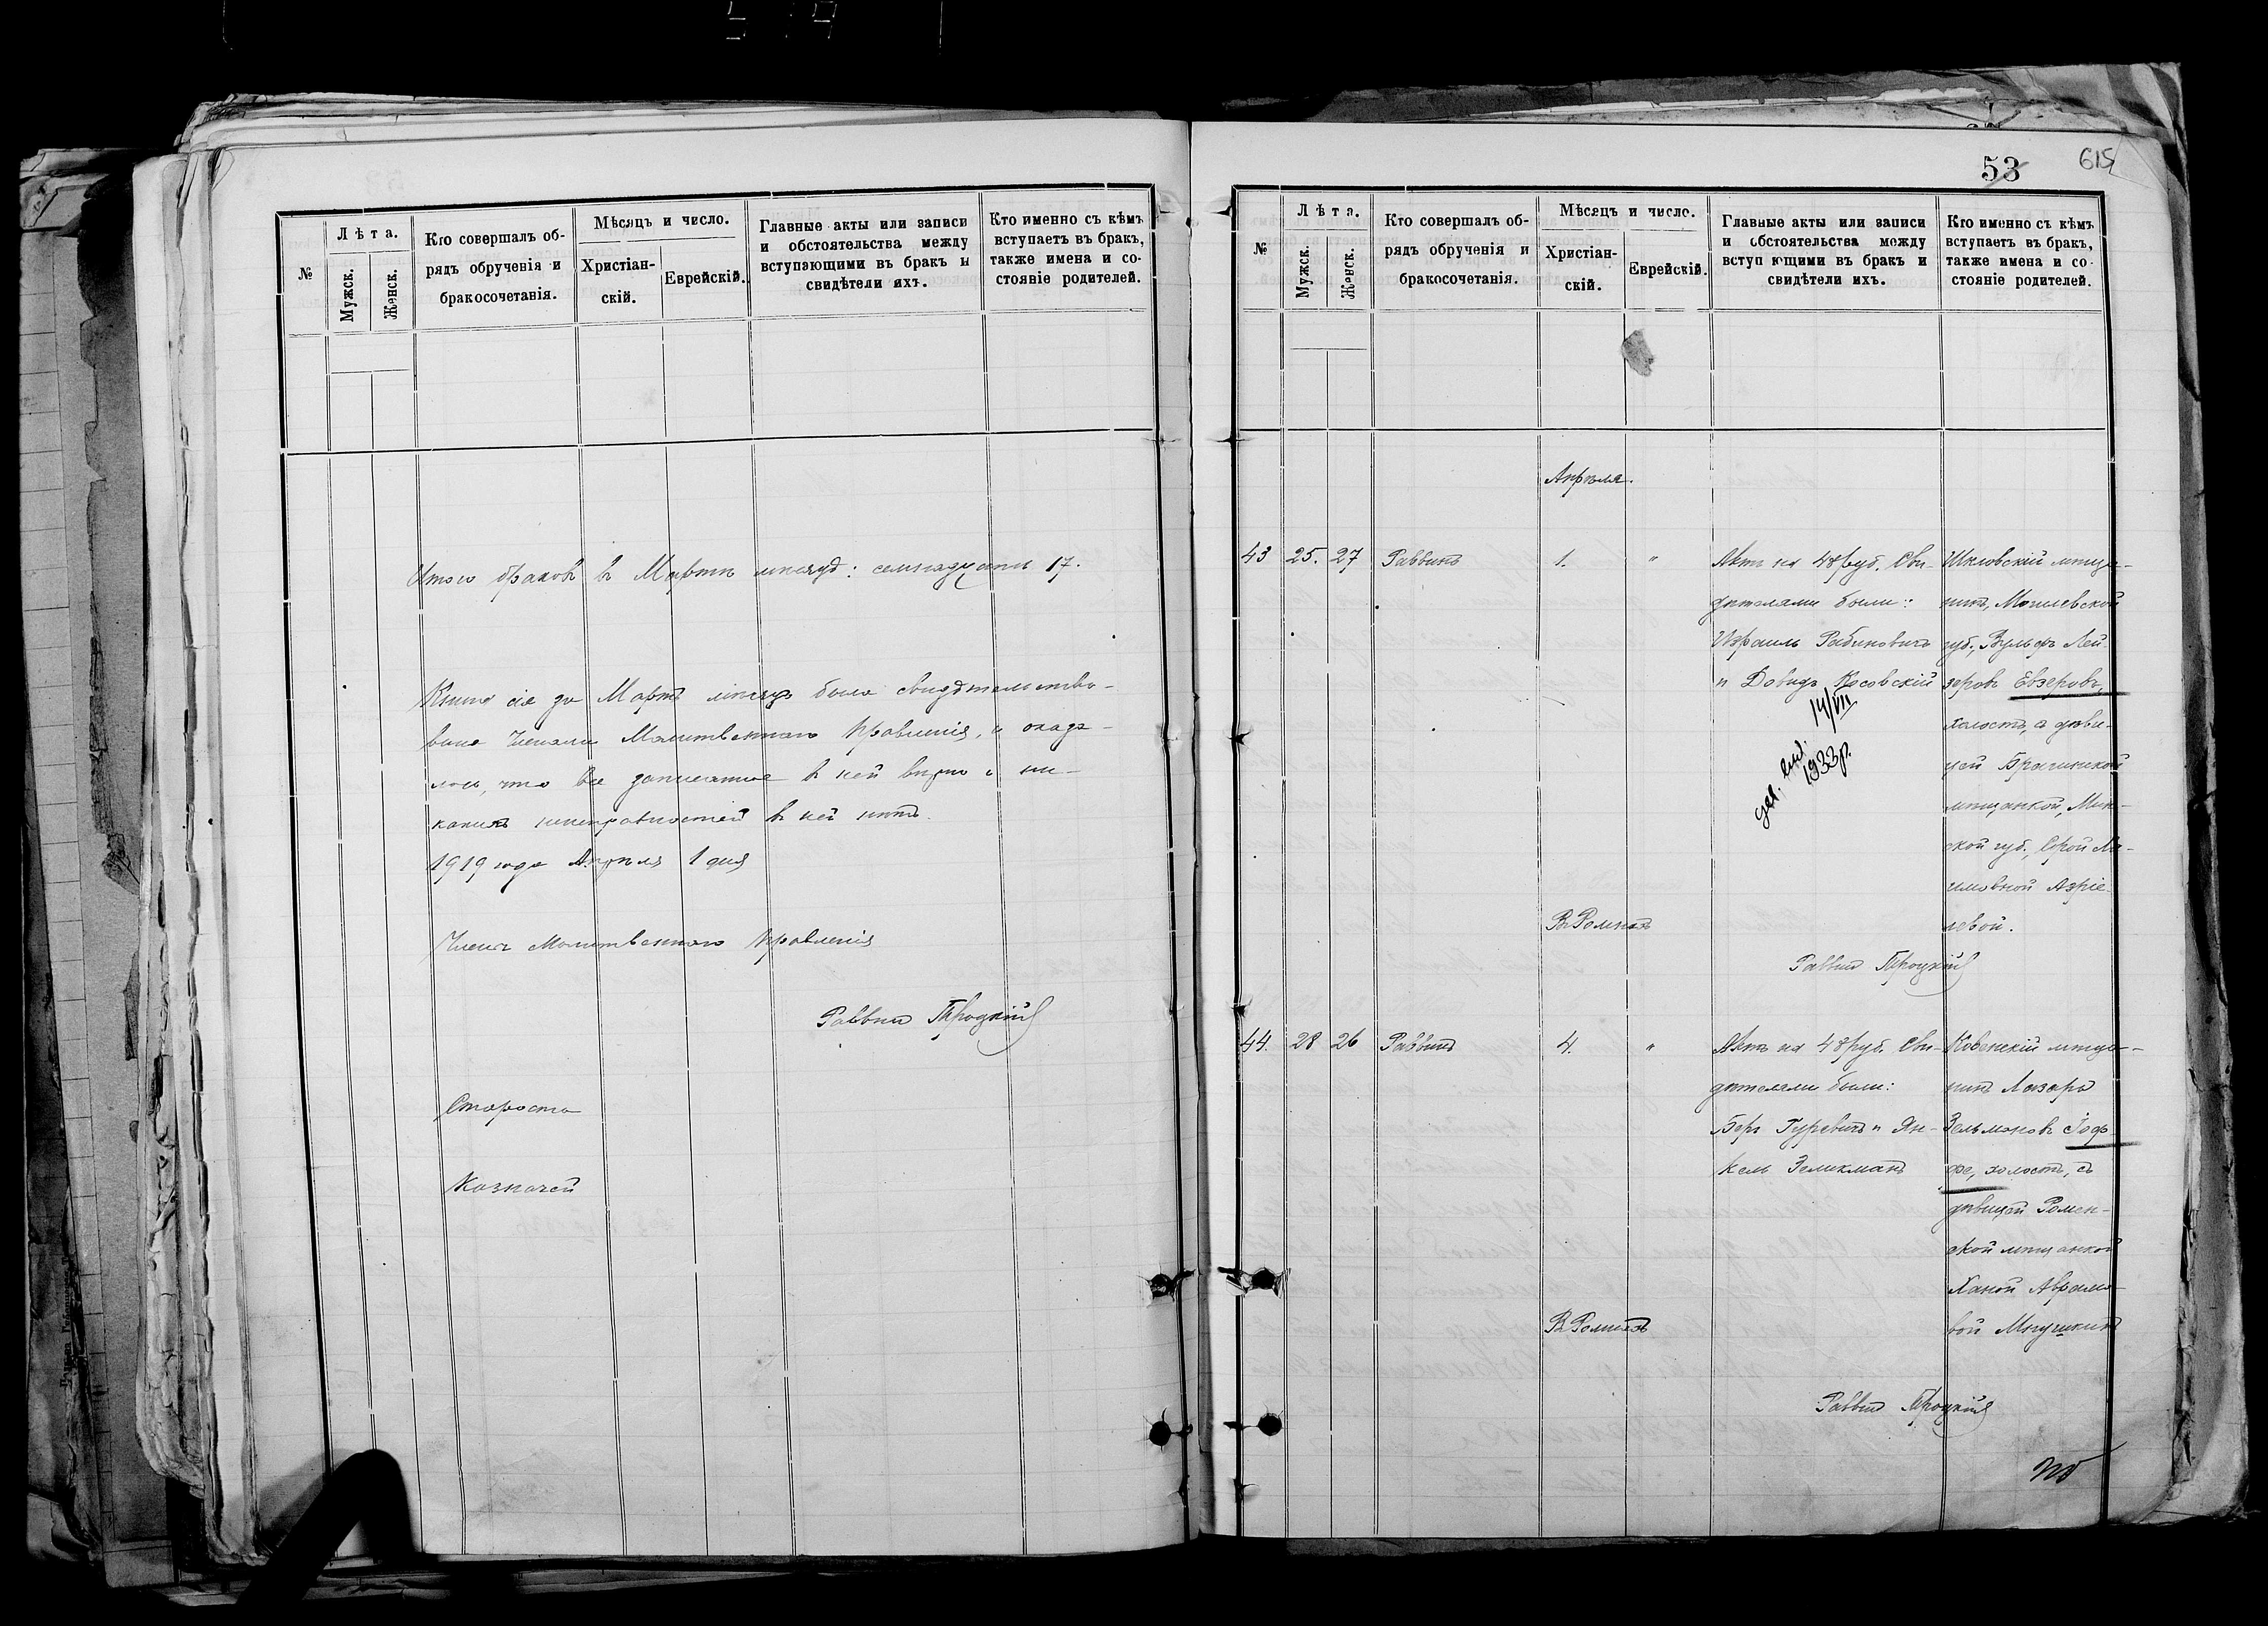 №
Лѣта.
Мужск.
Женск.
Кто совершалъ об-
рядъ обрученія и
бракосочетанія.
Мѣсяцъ и число.
Христіан-
скій.
Еврейскій.
Главные акты или записи
и обстоятельства между
вступающими въ бракъ и
свидѣтели ихъ.
Кто именно съ кѣмъ
вступаетъ въ бракъ,
также имена и со-
стояніе родителей.
Итого браковъ въ Мартѣ мѣсяцѣ: семнадцать 17.
Книга сія за Мартъ мѣсяцъ была свидѣтельство-
вана Членами Молитвеннаго Правленія, и оказа-
лось, что все записанное въ ней вѣрно и ни-
какихъ неисправностей въ ней нѣтъ.
1919 года Апрѣля 1 дня
Члены Молитвеннаго Правленія
Раввинъ Троцкій
Староста
Казначей
53
615
№
Лѣта.
Мужск.
Женск.
Кто совершалъ об-
рядъ обрученія и
бракосочетанія.
Мѣсяцъ и число.
Христіан-
скій.
Еврейскій.
Главные акты или записи
и обстоятельства между
вступ ющими въ бракъ и
свидѣтели ихъ.
Кто именно съ кѣмъ
вступаетъ въ бракъ,
также имена и со-
стояніе родителей.
Апрѣля.
43 25. 27 Раввинъ 1. "
Актъ на 48 руб. Сви-
дѣтелями были:
Израиль Рабиновичъ
и Довидъ Косовскій
14/VII
1933р.
Шкловскій мѣща-
нинъ, Могилевской
губ., Вульфъ Лей-
зеровъ Евзеровъ,
холостъ, а дѣви-
цей Брагинской
мѣщанкой, Мин-
ской губ.,
Азріе-
левой.
Въ Ромнахъ
Раввинъ Троцкій
44. 28 26 Раввинъ 4. "
Актъ на 48 руб. Сви-
дѣтелями были:
Беръ Гуревичъ и Ян-
кель Зеликманъ
Ковенскій мѣща-
нинъ Лазарь
Зельмановъ Іоф-
фе, холостъ, съ
дѣвицей Ромен-
ской мѣщанкой
Ханой Абрамо-
вой
Въ Ромнахъ
Раввинъ Троцкій